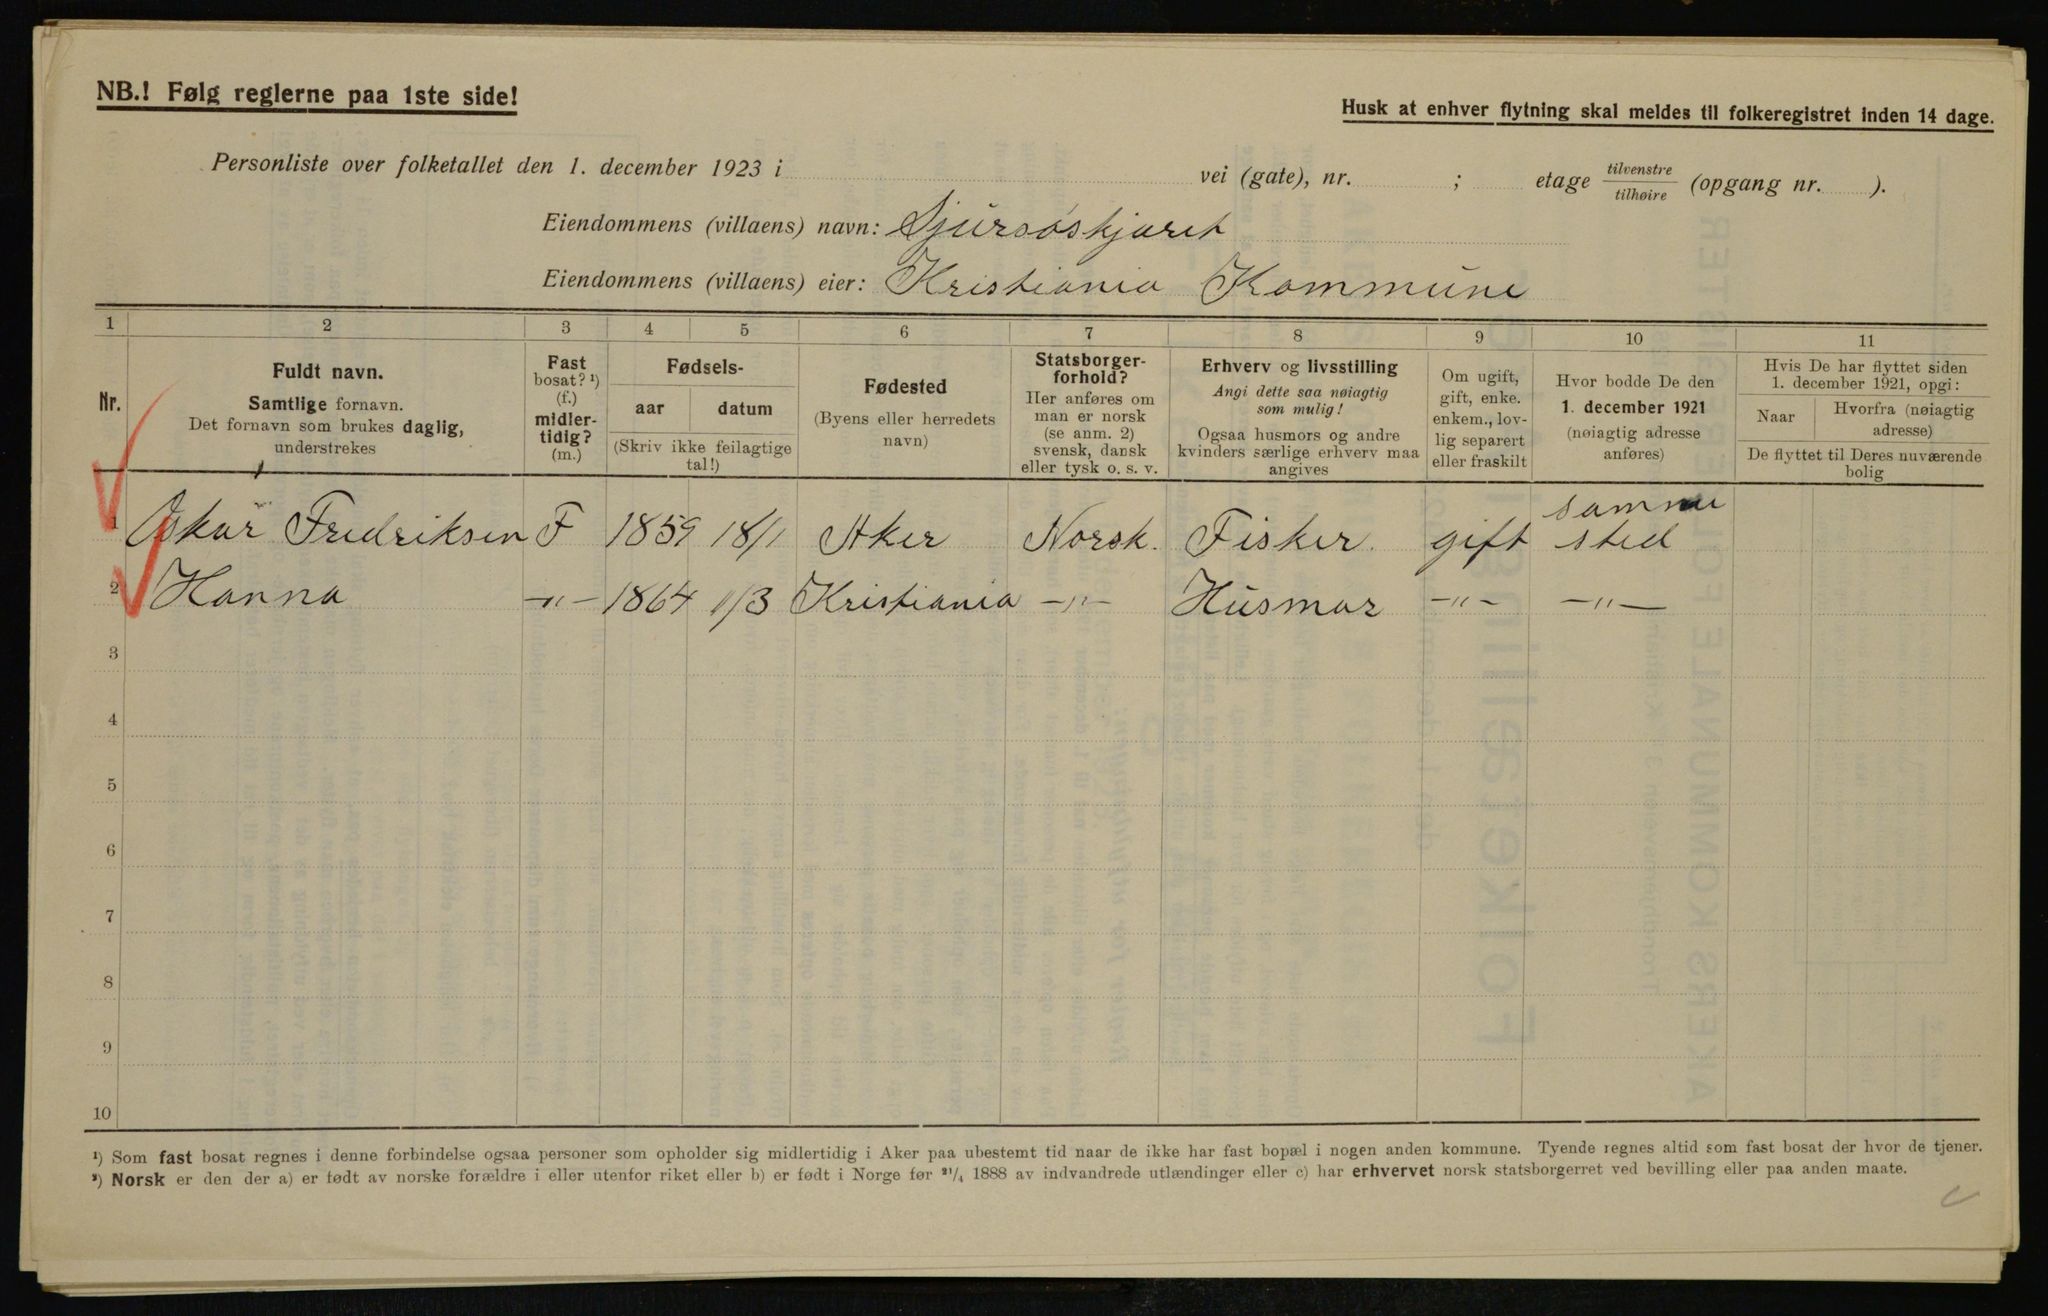 NB.! Følg reglerne paa 1ste side!
Husk at enhver flytning skal meldes til folkeregistret inden 14 dage.
Personliste over folketallet den 1. december 1923 i vei (gate), nr. ; etage tilvenstre/tilhøire (opgang nr. ).
Eiendommens (villaens) navn: Sjursøskjæret
Eiendommens (villaens) eier: Kristiania Kommune
1 2 3 4 5 6 7 8 9 10 11
Nr.
Fuldt navn.
Samtlige fornavn.
Det fornavn som brukes daglig,
understrekes
Fast
bosat? ¹)
(f.)
midler-
tidig?
(m.)
Fødsels-
aar datum
(Skriv ikke feilagtige
tal!)
Fødested
(Byens eller herredets
navn)
Statsborger-
forhold?
Her anføres om
man er norsk
(se anm. 2)
svensk, dansk
eller tysk o. s. v.
Erhverv og livsstilling
Angi dette saa nøiagtig
som mulig!
Ogsaa husmors og andre
kvinders særlige erhverv maa
angives
Om ugift,
gift, enke.
enkem., lov-
lig separert
eller fraskilt
Hvor bodde De den
1. december 1921
(nøiagtig adresse
anføres)
Hvis De har flyttet siden
1. december 1921, opgi:
Naar Hvorfra (nøiagtig
adresse)
De flyttet til Deres nuværende
bolig
1 Oskar Fredriksen F 1859 18/1 Aker Norsk. Fisker. gift samme sted
2 Hanna —"— 1864 11/3 Kristiania —"— Husmor —"— —"—
3
4
5
6
7
8
9
10
¹) Som fast bosat regnes i denne forbindelse ogsaa personer som opholder sig midlertidig i Aker paa ubestemt tid naar de ikke har fast bopæl i nogen anden kommune. Tyende regnes altid som fast bosat der hvor de tjener.
²) Norsk er den der a) er født av norske forældre i eller utenfor riket eller b) er født i Norge før ²¹/₄ 1888 av indvandrede utlændinger eller c) har erhvervet norsk statsborgerret ved bevilling eller paa anden maate.